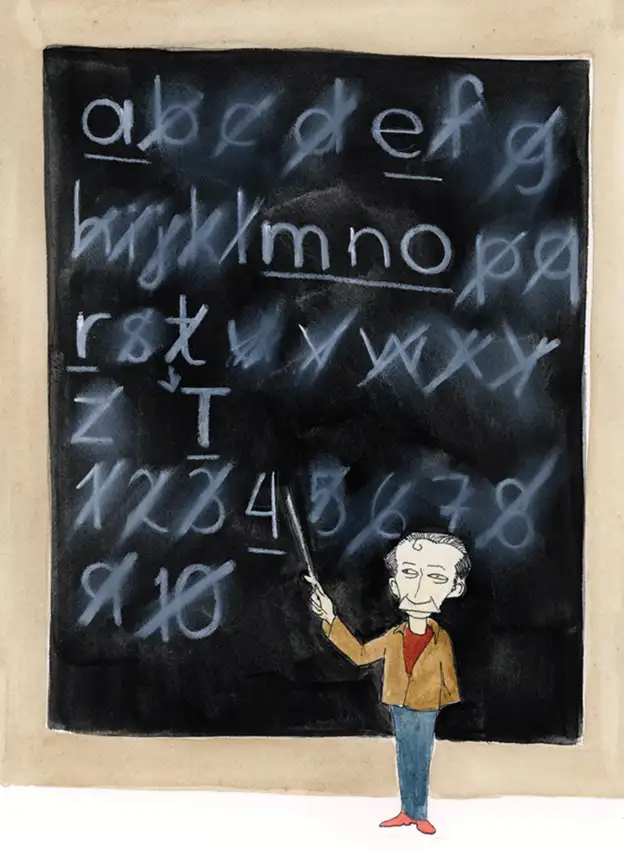 a b c d e f g
h i j k l m n o p q
r s t u v w x y
z T
1 2 3 4 5 6 7 8
9 10